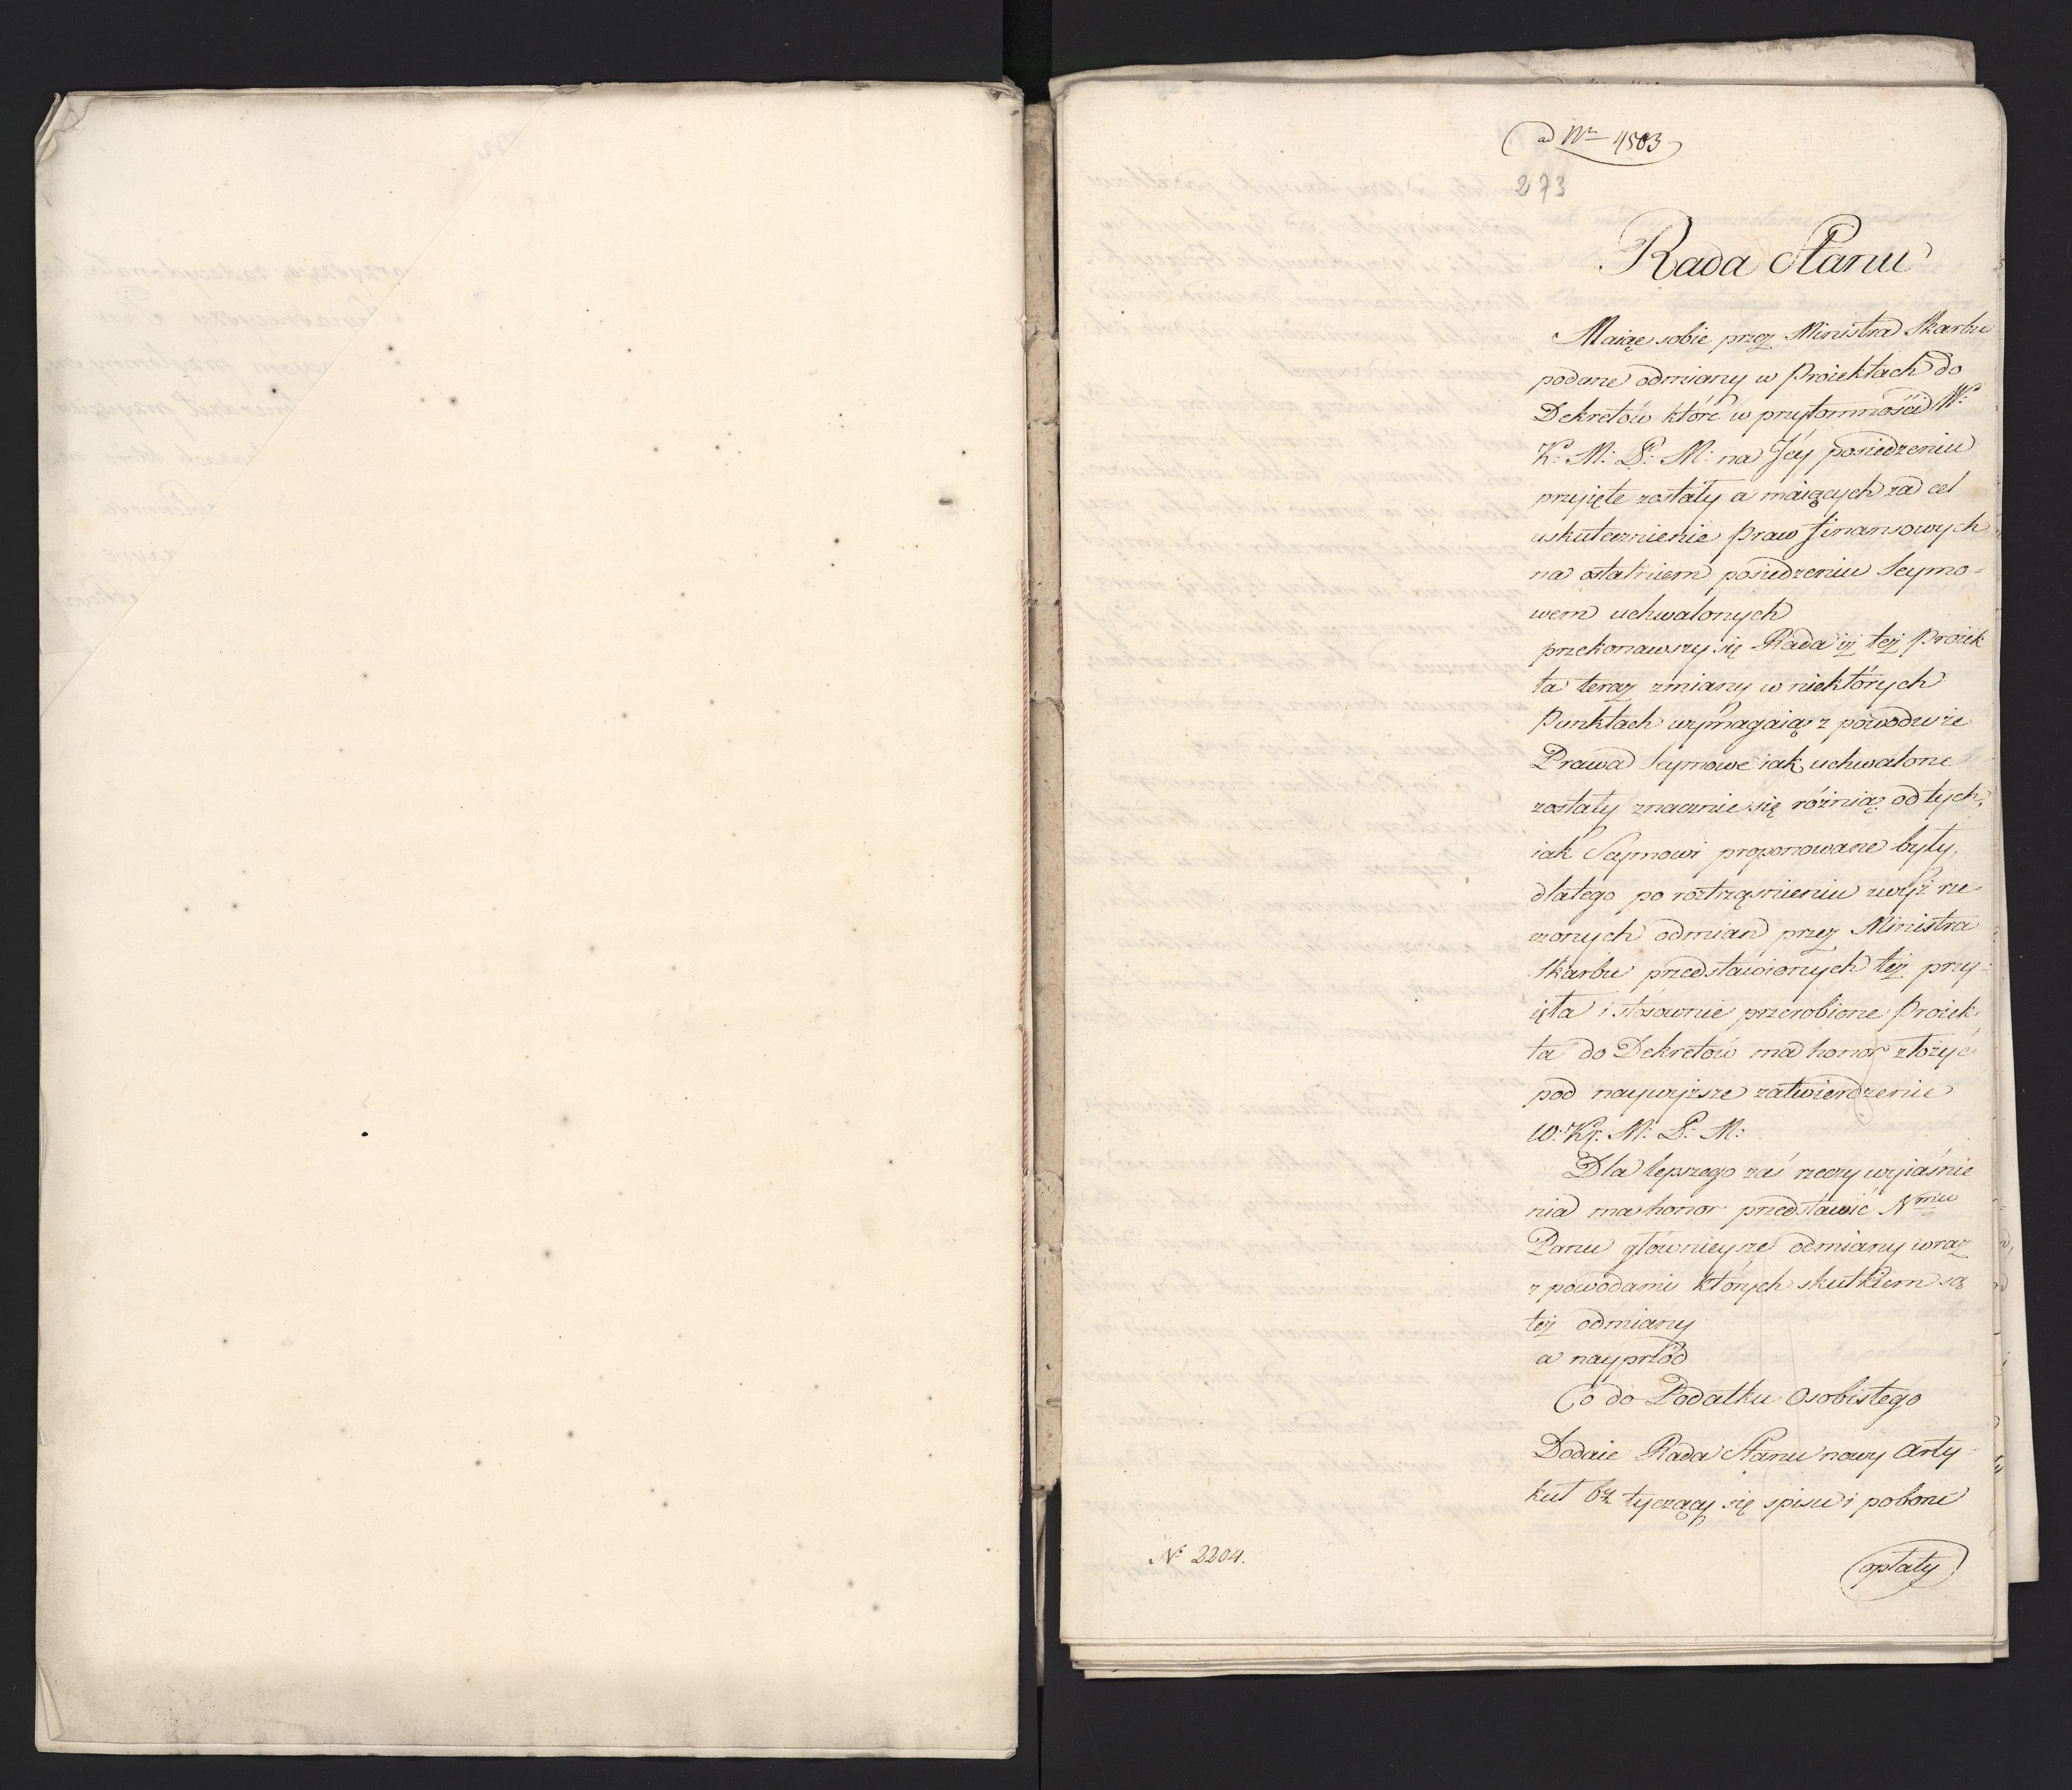 ad Nr 4503
273
Rada Stanu
Maiąc sobie przez Ministra Skarbu
podane odmiany w Proiektach do
Dekretów które w przytomności W:
K: M: P: M: na Jéy posiedzeniu
przyięte zostały a maiących za cel
uskutecznienie Praw finansowych
na ostatniem posiedzeniu Seymo=
wem uchwalonych
przekonawszy się Rada iż też Proiek
ta teraz zmiany w niektórych
Punktach wymagaią z powodu że
Prawa Seymowe iak uchwalone
zostały znacznie się różnią od tych,
iak Seymowi proponowane były,
dlatego po roztrząśnieniu wyż rze
czonych odmian przez Ministra
Skarbu przedstawionych też przy=
ięła i stosownie przerobione Proiek
ta do Dekretów ma honor złożyć
pod naywyższe zatwierdzenie
W: Kr: M: P: M:
Dla lepszego zaś rzeczy wyiaśnie
nia ma honor przedstawić Nmu
Panu głównieysze odmiany wraz
z powodami których skutkiem są
też odmiany
a nayprzód
Co do Podatku Osobistego
Dodaie Rada Stanu nowy Arty
kuł tyczący się spisu i poboru
opłaty
N: 2204.